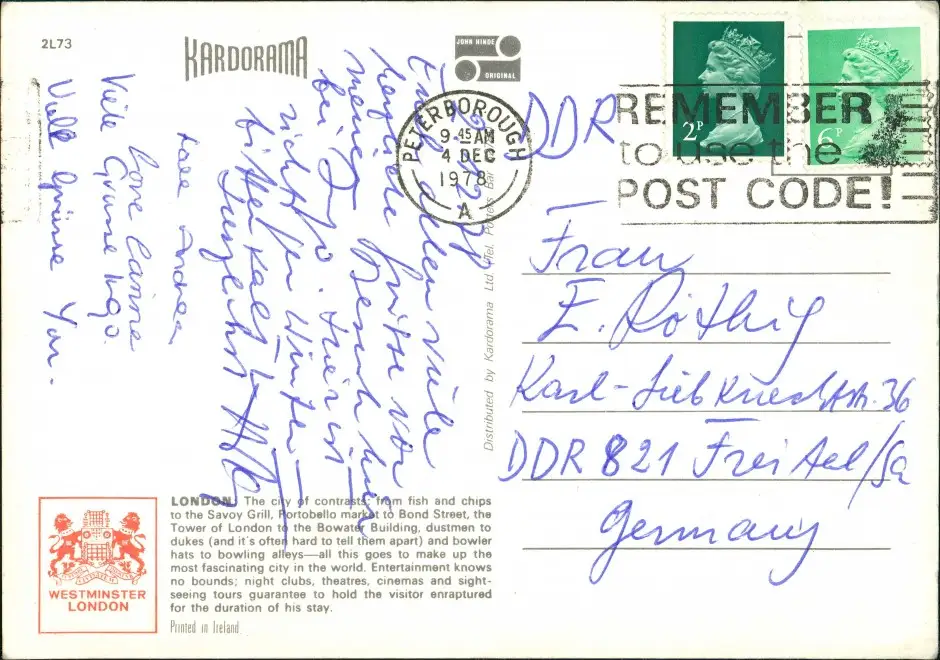 2L73
KARDORAMA
JOHN HINDE
ORIGINAL
PETERBOROUGH
9 45 AM
4 DEC
1978
A
REMEMBER
to use the
POST CODE!
2P
6P
Euch allen viele
herzliche Grüße von
meinem Besuch hier
bei Ingo. Hier ist
richtiger Winter
bitterkalt
Love Carina
Viele Grüße Ingo.
Viele Grüsse
DDR
Frau
E. Röthig
Karl-Liebknechtstr. 36
DDR 821 Freital/Sa
Germany
Distributed by Kardorama Ltd. Tel. Potters Bar
LONDON. The city of contrasts; from fish and chips
to the Savoy Grill, Portobello market to Bond Street, the
Tower of London to the Bowater Building, dustmen to
dukes (and it's often hard to tell them apart) and bowler
hats to bowling alleys—all this goes to make up the
most fascinating city in the world. Entertainment knows
no bounds; night clubs, theatres, cinemas and sight-
seeing tours guarantee to hold the visitor enraptured
for the duration of his stay.
Printed in Ireland
WESTMINSTER
LONDON